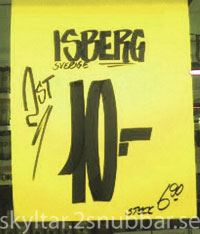 ISBERG
SVERIGE
2ST
10.-
STYCK 6.90
skyltar.2snubbar.se